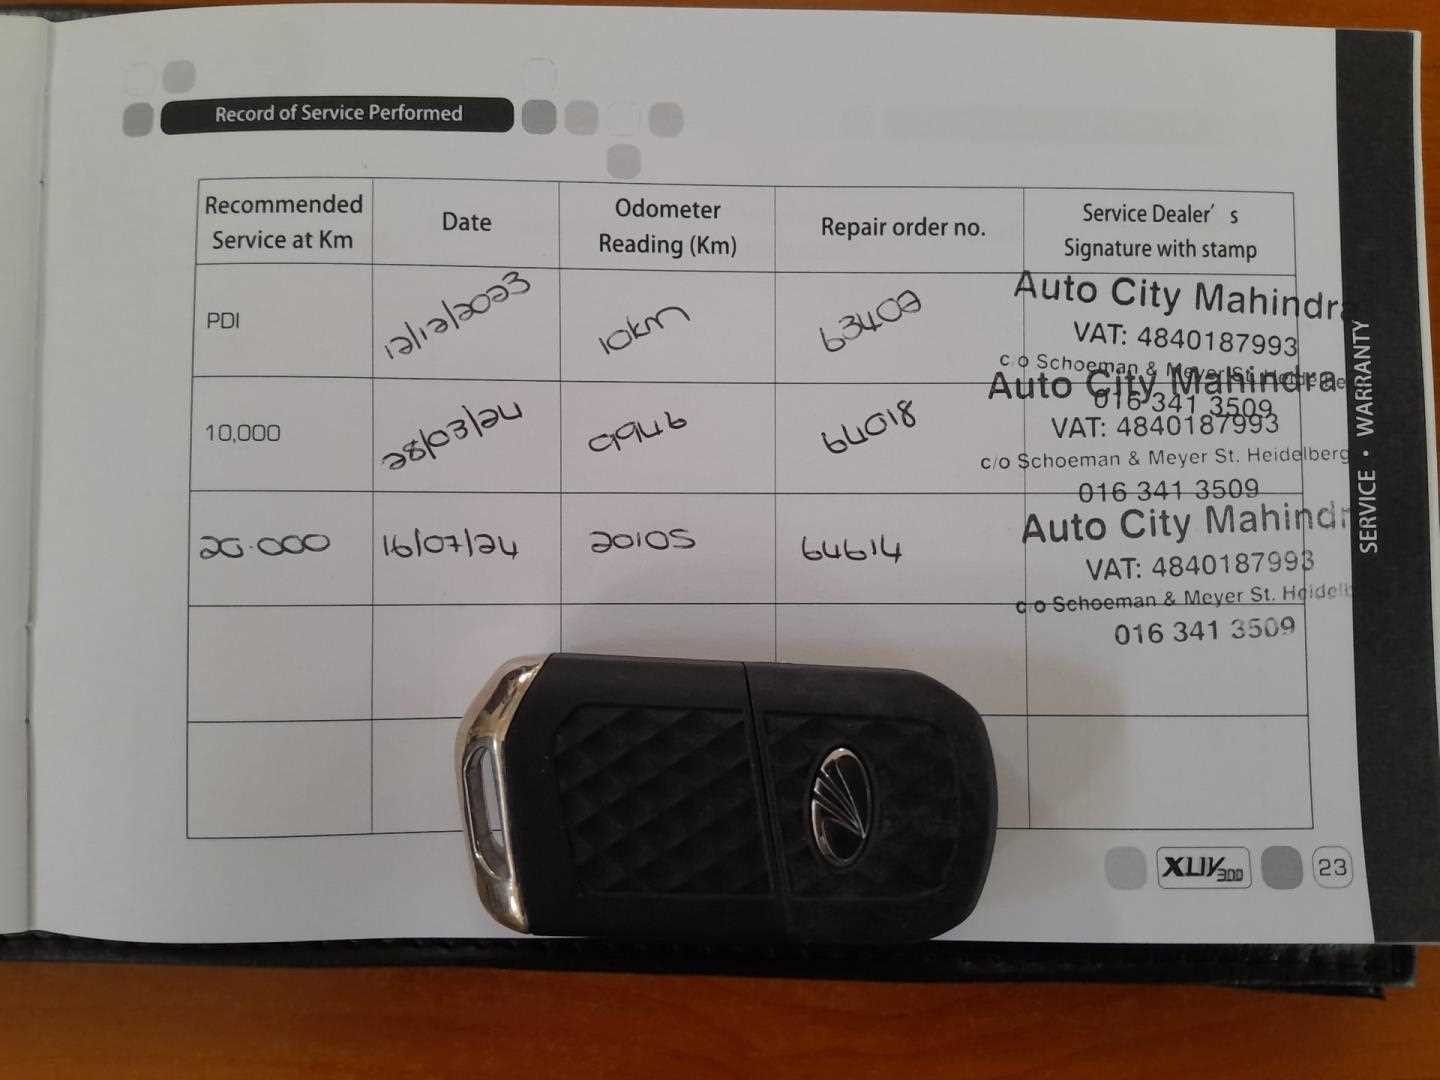 Record of Service Performed
Recommended Service at Km
Date
Odometer Reading (Km)
Repair order no.
Service Dealer's Signature with stamp
PDI
12/12/2023
10km
63402
Auto City Mahindra
VAT: 4840187993
c/o Schoeman & Meyer St. Heidelbe
016 341 3509
10,000
28/03/24
9946
64018
Auto City Mahindra
VAT: 4840187993
c/o Schoeman & Meyer St. Heidelberg
016 341 3509
20.000
16/07/24
20105
64614
Auto City Mahindr
VAT: 4840187993
c/o Schoeman & Meyer St. Heidelb
016 341 3509
SERVICE • WARRANTY
XUV300
23